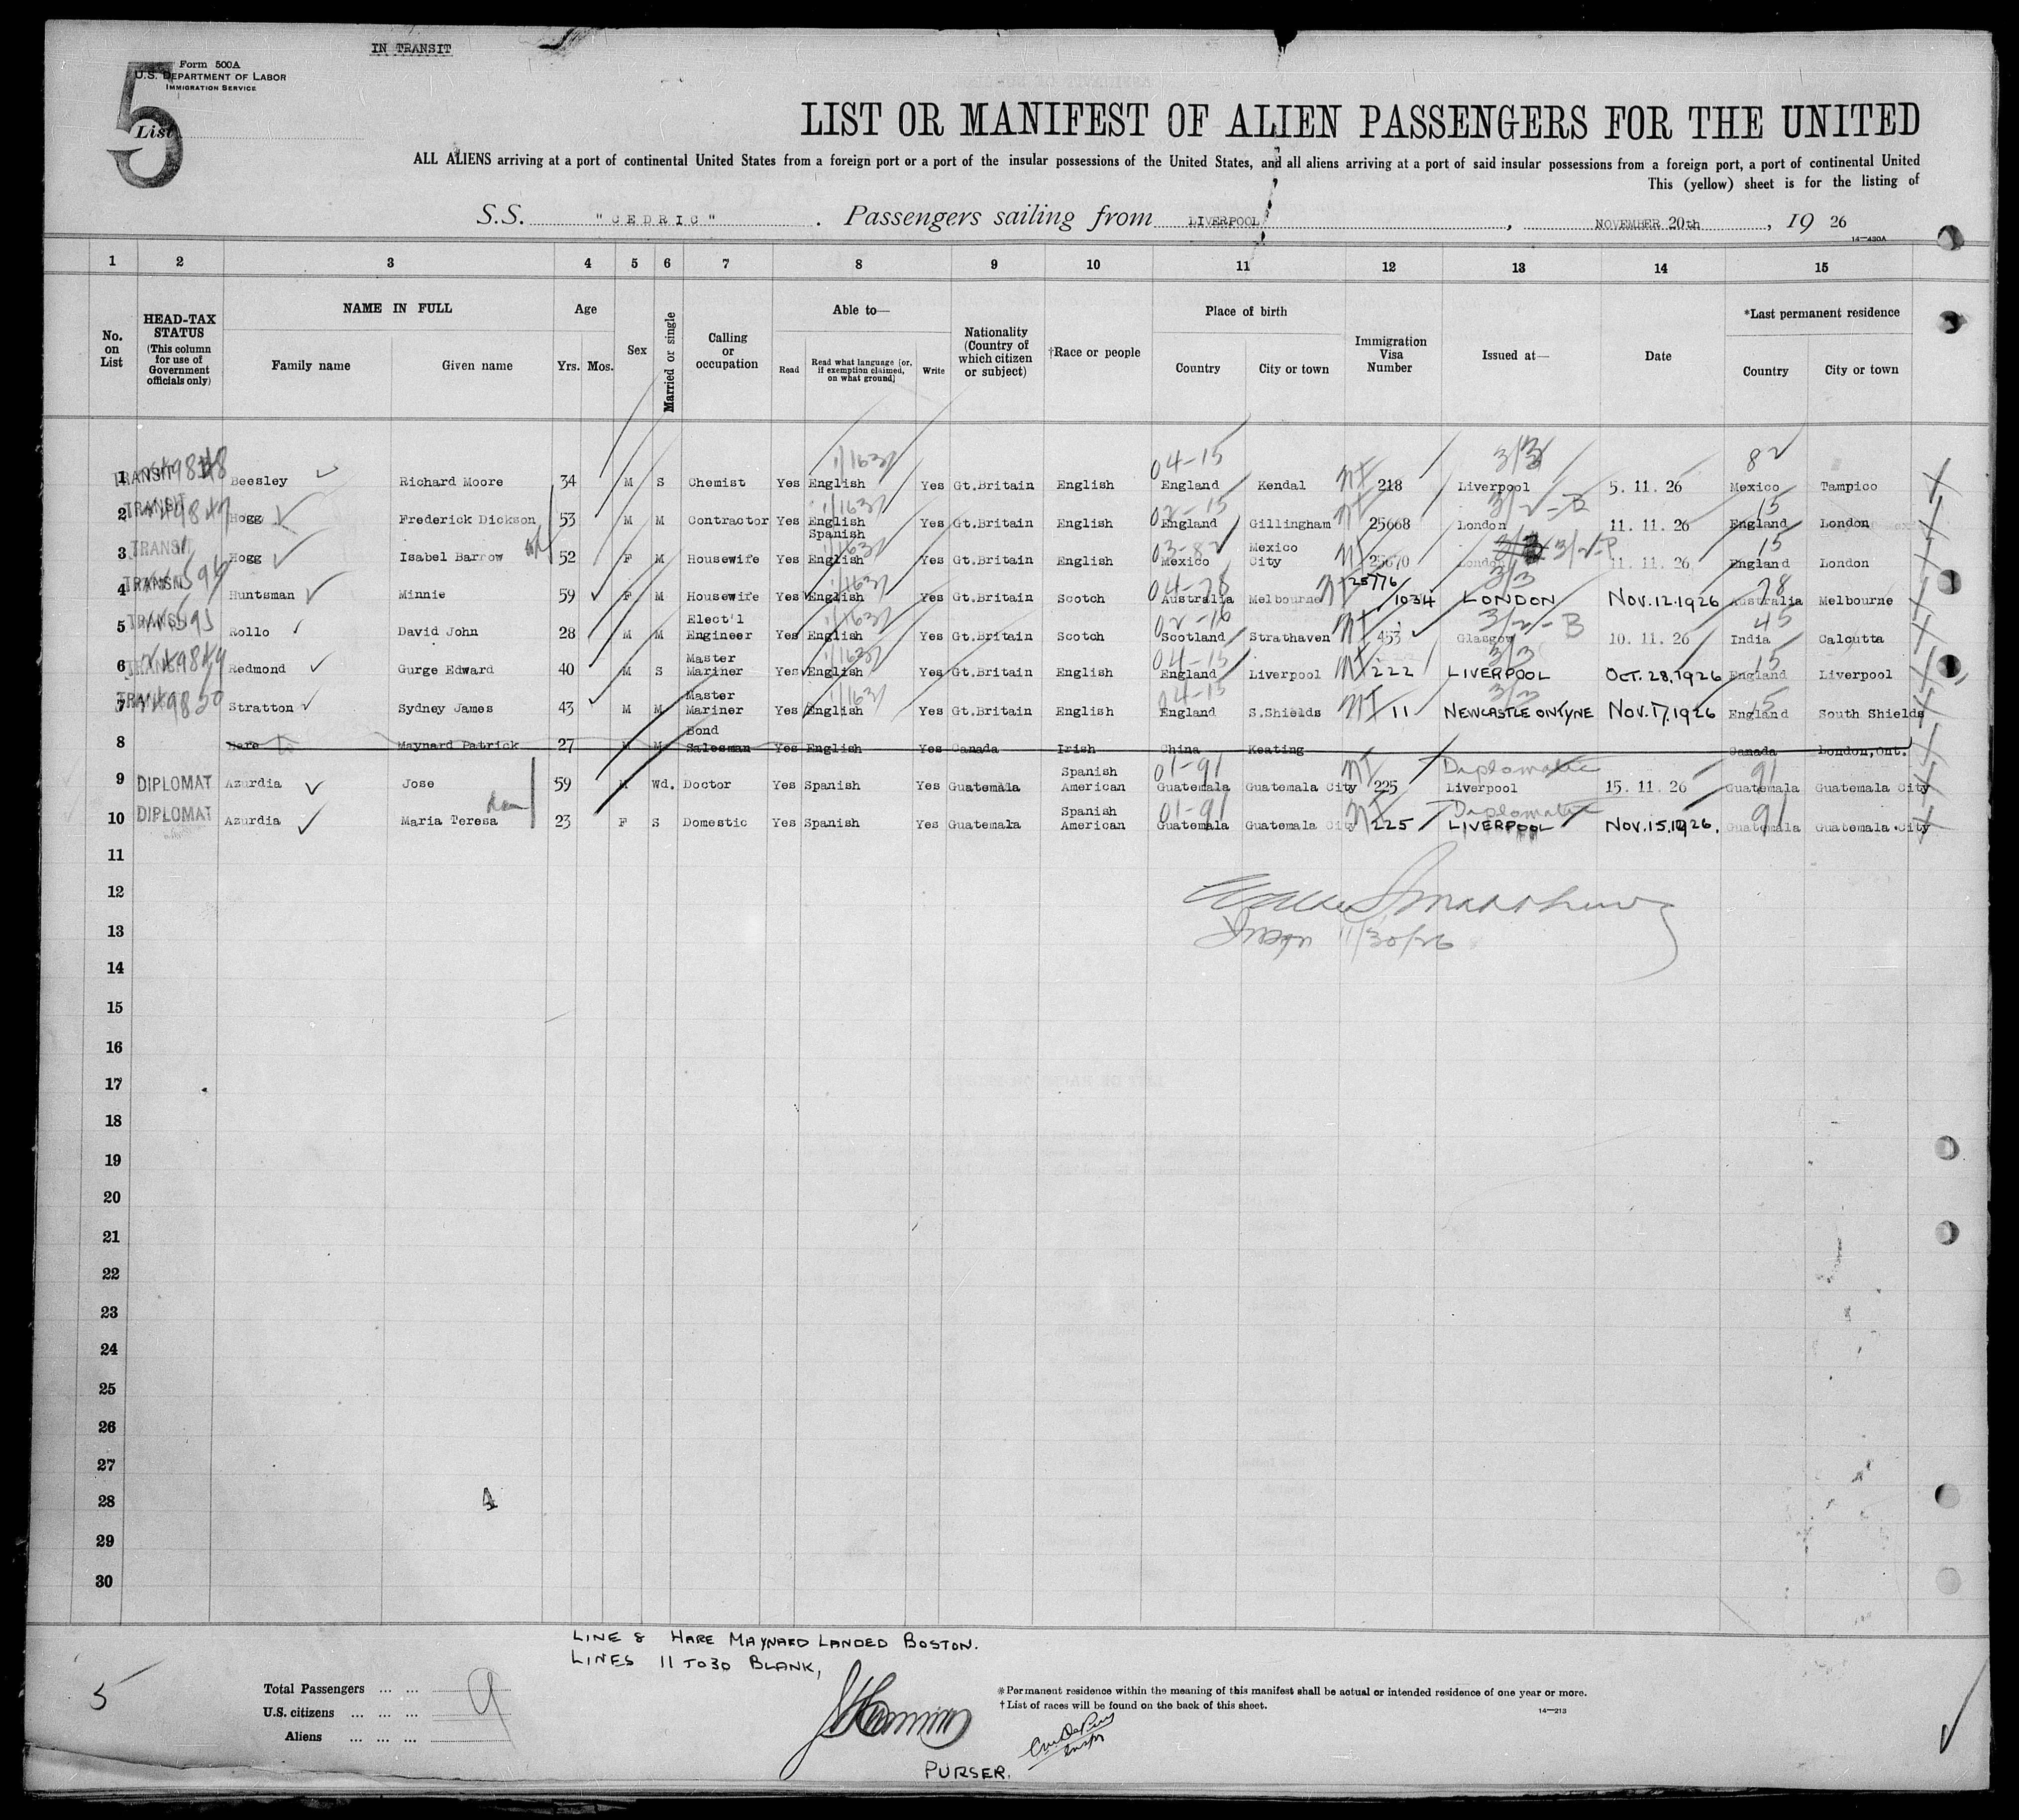 IN TRANSIT
Form 500A
U.S. DEPARTMENT OF LABOR
IMMIGRATION SERVICE
5
List
LIST OR MANIFEST OF ALIEN PASSENGERS FOR THE UNITED
ALL ALIENS arriving at a port of continental United States from a foreign port or a port of the insular possessions of the United States, and all aliens arriving at a port of said insular possessions from a foreign port, a port of continental United
This (yellow) sheet is for the listing of
S.S. "CEDRIC" . Passengers sailing from LIVERPOOL , NOVEMBER 20th , 19 26
14—430A
1 2 3 4 5 6 7 8 9 10 11 12 13 14 15
No. on List
HEAD-TAX STATUS (This column for use of Government officials only)
NAME IN FULL
Family name Given name
Age
Yrs. Mos.
Sex
Married or single
Calling or occupation
Able to—
Read Read what language [or, if exemption claimed, on what ground] Write
Nationality (Country of which citizen or subject)
†Race or people
Place of birth
Country City or town
Immigration Visa Number
Issued at—
Date
*Last permanent residence
Country City or town
04-15 3/3 82
1 TRANSIT Beesley Richard Moore 34 M S Chemist Yes English Yes Gt.Britain English England Kendal 218 Liverpool 5. 11. 26 Mexico Tampico
02-15 15
2 TRANSIT Hogg Frederick Dickson 53 M M Contractor Yes English Yes Gt.Britain English England Gillingham 25668 London 11. 11. 26 England London
03-82 3/2-P 15
3 TRANSIT Hogg Isabel Barrow 52 F M Housewife Yes Spanish English Yes Gt.Britain English Mexico Mexico City 25670 London 11. 11. 26 England London
04-78 3/3 78
4 TRANSIT Huntsman Minnie 59 F M Housewife Yes English Yes Gt.Britain Scotch Australia Melbourne 25776 1034 LONDON NOV.12.1926 Australia Melbourne
02-16 3/2-B 45
5 TRANSIT Rollo David John 28 M M Elect'l Engineer Yes English Yes Gt.Britain Scotch Scotland Strathaven 453 Glasgow 10. 11. 26 India Calcutta
04-15 3/3 15
6 TRANSIT Redmond Gurge Edward 40 M S Master Mariner Yes English Yes Gt.Britain English England Liverpool 222 LIVERPOOL OCT.28.1926 England Liverpool
04-15 3/3 15
7 TRANSIT Stratton Sydney James 43 M M Master Mariner Yes English Yes Gt.Britain English England S.Shields 11 NEWCASTLE ON TYNE NOV.17,1926 England South Shields
8 Hare Maynard Patrick 27 M M Bond Salesman Yes English Yes Canada Irish China Keating Canada London,Ont.
01-91 Diplomatic 91
9 DIPLOMAT Azurdia Jose 59 M Wd. Doctor Yes Spanish Yes Guatemala Spanish American Guatemala Guatemala City 225 Liverpool 15. 11. 26 Guatemala Guatemala City
01-91 Diplomatic 91
10 DIPLOMAT Azurdia Maria Teresa 23 F S Domestic Yes Spanish Yes Guatemala Spanish American Guatemala Guatemala City 225 LIVERPOOL NOV.15.1926. Guatemala Guatemala City
11
12
13
11/30/26
14
15
16
17
18
19
20
21
22
23
24
25
26
27
28
29
30
LINE 8 HARE MAYNARD LANDED BOSTON.
LINES 11 TO 30 BLANK,
5
Total Passengers ... ... 9
U.S. citizens ... ... ...
Aliens ... ... ...
*Permanent residence within the meaning of this manifest shall be actual or intended residence of one year or more.
†List of races will be found on the back of this sheet.
14—213
PURSER.